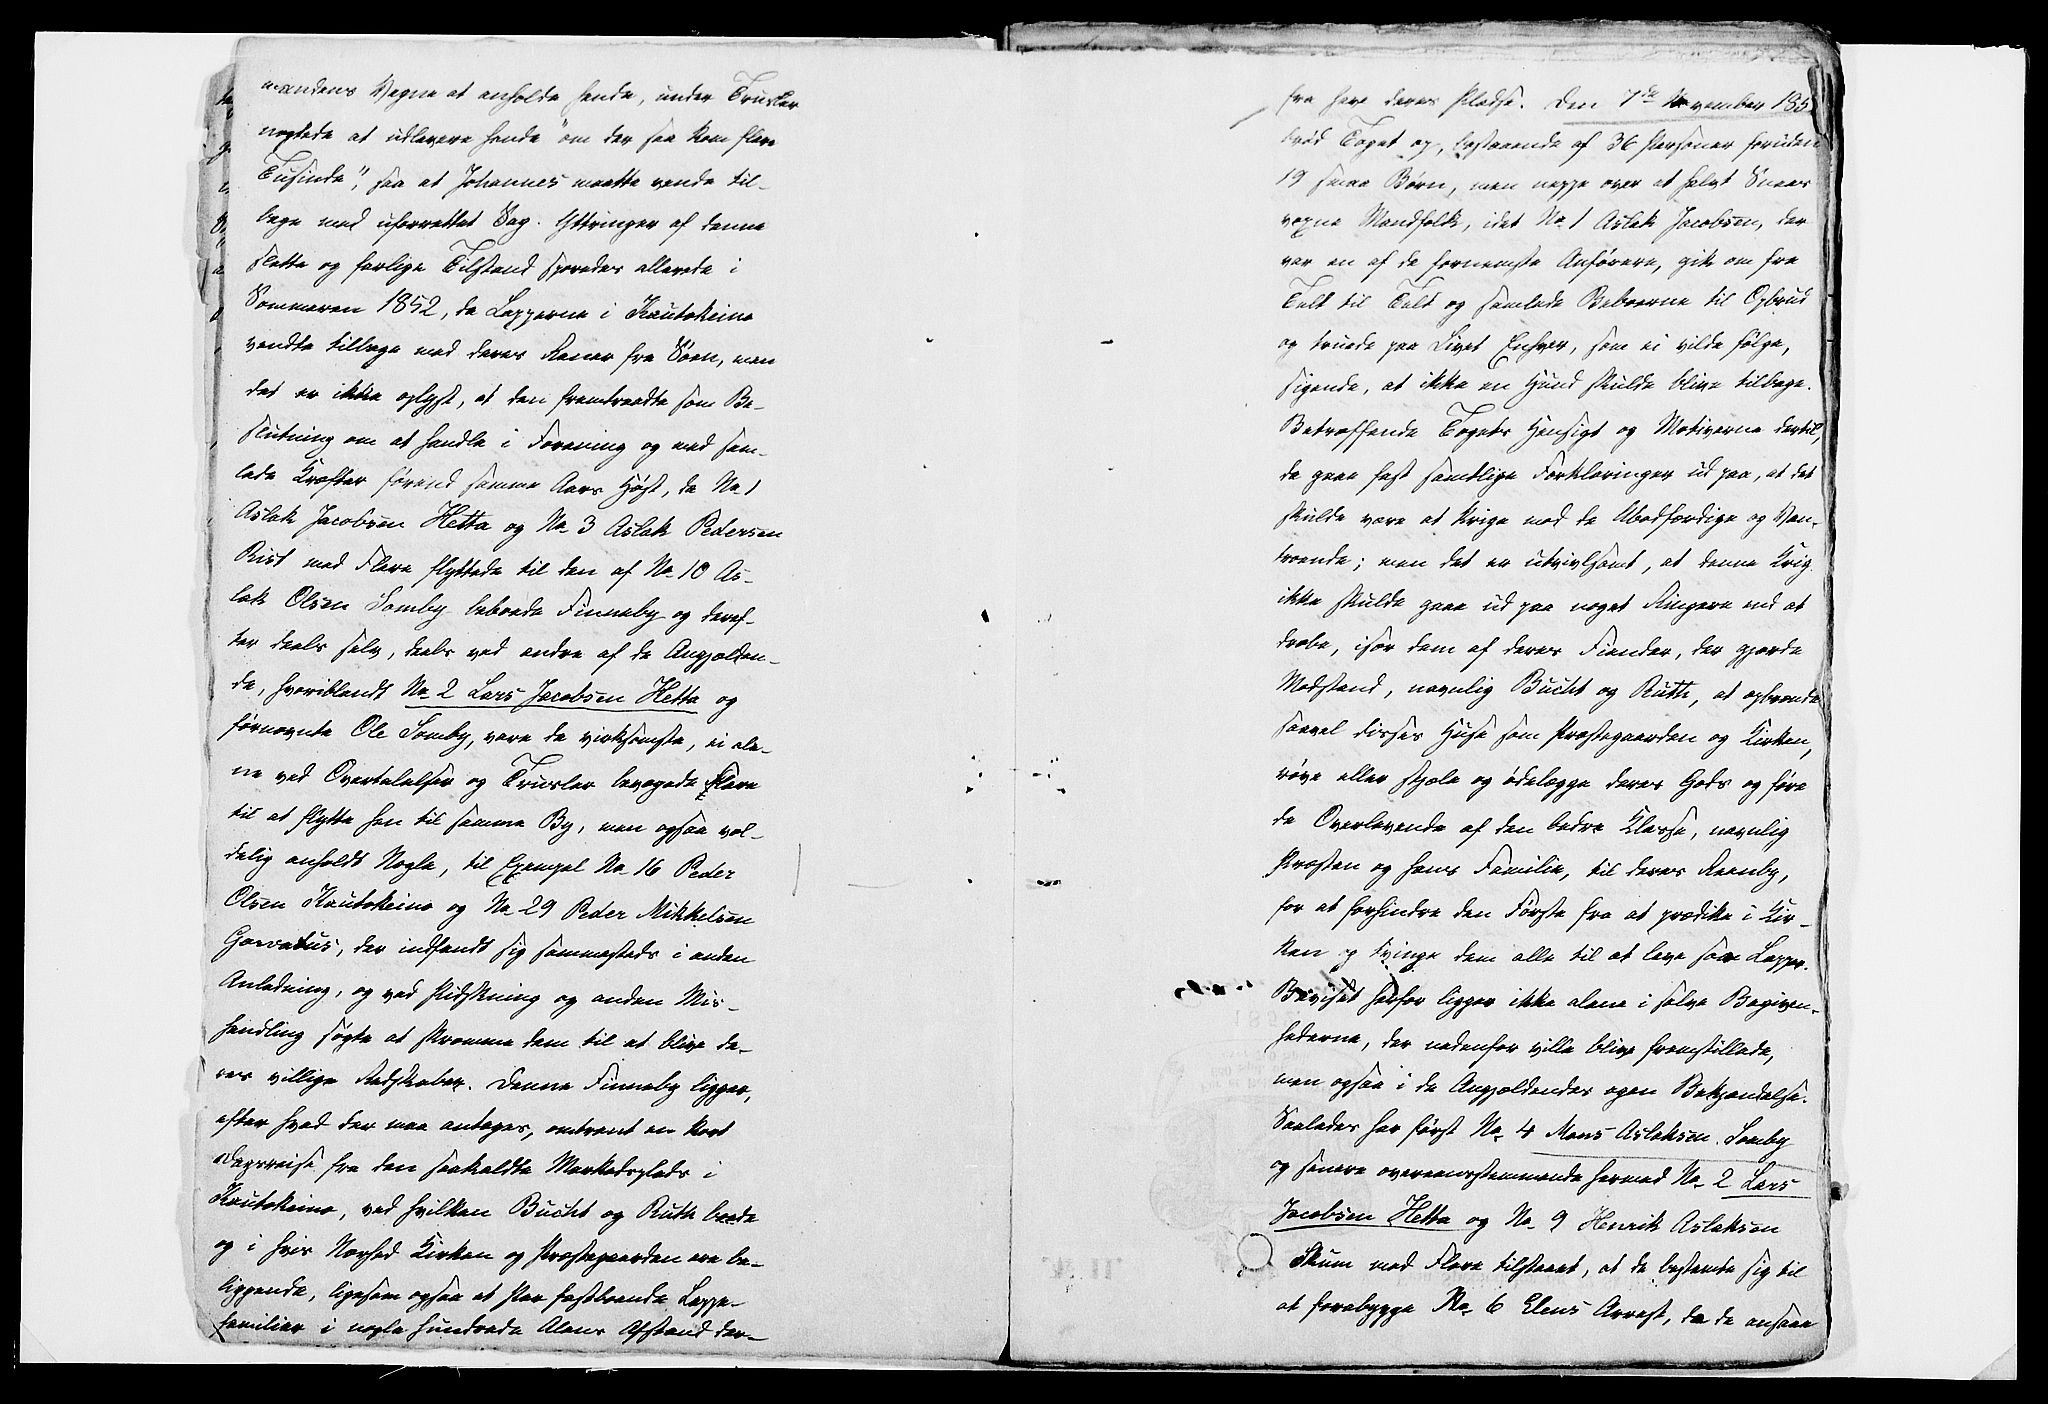 mandens Vegne at anholde hende, under Trusler
negtede at udlevere hende "om der saa kom flere
Tusinde", saa at Johannes maatte vende til-
bage med uforrettet Sag. Yttringer af denne
slette og farlige Tilstand sporedes allerede i
Sommeren 1852, da Lapperne i Kautokeino
vendte tilbage med deres Rener fra Søen, men
det er ikke oplyst, at den fremtraadte som Be-
slutning om at handle i Forening og med sam-
lede Kræfter førend samme Aars Høst, da No 1
Aslak Jacobsen Hetta og No 3 Aslak Pedersen
Rist med Flere flyttede til den af No 10 As-
lak Olsen Somby beboede Finneby og deref-
ter deels selv, deels ved andre af de Angjælden-
de, hvoriblandt No 2 Lars Jacobsen Hetta og
førnævnte Ole Somby, vare de virksomste, ei ale-
ne ved Overtalelser og Trusler bevægede Flere
til at flytte hen til samme By, men ogsaa vol-
delig anholdt Nogle, til Exempel No 16 Peder
Olsen Kautokeino og No 29 Peder Mikkelsen
Gorvatus, der indfandt sig sammesteds i anden
Anledning, og ved Pidskning og anden Mis-
handling søgte at skræmme dem til at blive de-
res villige Redskaber. Denne Finneby ligger,
efter hvad der maa antages, omtrent en kort
Dagsreise fra den saakaldte Markedsplads i
Kautokeino, ved hvilken Bucht og Ruth boede
og i hvis Nærhed Kirken og Præstegaarden ere be-
liggende, ligesom ogsaa et Par fastboende Lappe-
familier i nogle hundrede Alens Afstand der-
fra have deres Pladse. Den 7de November 185
brød Toget op, bestaaende af 36 Personer foruden
19 smaa Børn, men neppe over et halvt Snees
voxne Mandfolk, idet No 1 Aslak Jacobsen, der
var en af de fornemste Anførere, gik om fra
Telt til Telt og samlede Beboerne til Opbrud
og truede paa Livet Enhver, som ei vilde følge,
sigende, at ikke en Hund skulde blive tilbage.
Betræffende Togets Hensigt og Motiverne dertil,
da gaae fast samtlige Forklaringer ud paa, at det
skulde være at krige med de Ubodfærdige og Van-
troende; men det er utvivlsomt, at denne Krig
ikke skulde gaae ud paa noget Ringere end at
dræbe, især dem af deres Fiender, der gjorde
Modstand, navnlig Bucht og Ruth, at opbrænde
saavel disses Huse som Præstegaarden og Kirken,
røve eller stjæle og ødelægge deres Gods og føre
de Overlevende af den bedre Klasse, navnlig
Præsten og hans Familie, til deres Reenby,
for at forhindre den Første fra at prædike i Kir-
ken og tvinge dem alle til at leve som Lapper.
Beviset herfor ligger ikke alene i selve Begiven-
hederne, der nedenfor ville blive fremstillede,
men ogsaa i de Angjældendes egen Bekjendelse.
Saaledes har først No 4 Mons Aslaksen Somby
og senere overeensstemmende hermed No 2 Lars
Jacobsen Hetta og No 9 Henrik Aslaksen
Skum med Flere tilstaaet, at de bestemte sig til
at forebygge No 6 Elens Arrest, da de ansaae